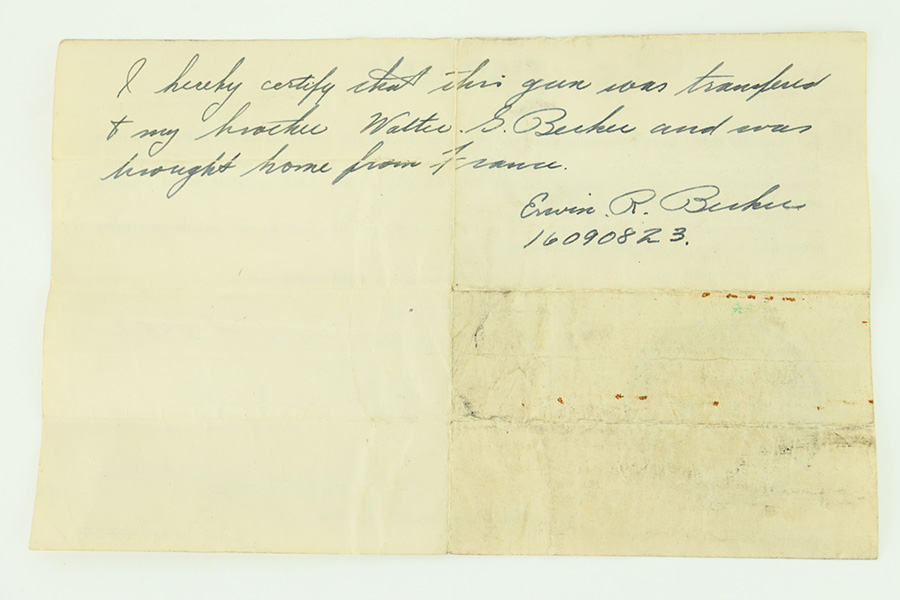 I hereby certify that this gun was transfered
t my brother Walter. G. Becker and was
brought home from France.
Erwin. R. Becker
16090823.